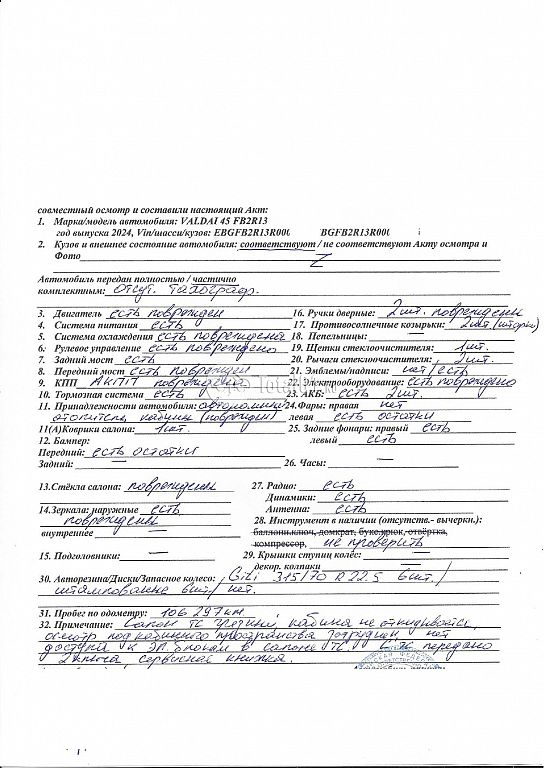 совместный осмотр и составили настоящий Акт:
1. Марка/модель автомобиля: VALDAI 45 FB2R13
год выпуска 2024, Vin/шасси/кузов: EBGFB2R13R000 BGFB2R13R000
2. Кузов и внешнее состояние автомобиля: соответствуют / не соответствуют Акту осмотра и
Фото
Автомобиль передан полностью / частично
комплектным: отсут. тахограф.
3. Двигатель есть поврежден 16. Ручки дверные: 2шт. повреждены
4. Система питания есть 17. Противосолнечные козырьки: 2шт (шторки)
5. Система охлаждения есть повреждена 18. Пепельницы: —
6. Рулевое управление есть повреждено 19. Щетки стеклоочистителя: 1шт.
7. Задний мост есть 20. Рычаги стеклоочистителя: 2шт.
8. Передний мост есть поврежден 21. Эмблемы/надписи: нет/есть
9. КПП АКПП повреждена 22. Электрооборудование: есть повреждено
10. Тормозная система есть 23. АКБ: есть 2шт.
11. Принадлежности автомобиля: автономный 24.Фары: правая нет
отопитель кабины (поврежден) левая есть остатки
11(А)Коврики салона: 1шт. 25. Задние фонари: правый есть
12. Бампер: левый есть
Передний: есть остатки
Задний: — 26. Часы: —
13.Стёкла салона: повреждены 27. Радио: есть
Динамики: есть
14.Зеркала: наружные есть Антенна: есть
повреждены 28. Инструмент в наличии (отсутств.- вычеркн.):
внутреннее — баллонн.ключ, домкрат, букс.крюк, отвёртка,
компрессор, не проверить
15. Подголовники: — 29. Крышки ступиц колёс:
декор. колпаки —
30. Авторезина/Диски/Запасное колесо: Giti 315/70 R22.5 6шт./
штампованые 6шт./ нет.
31. Пробег по одометру: 106 297км.
32. Примечание: Салон ТС грязный, кабина не откидывается,
осмотр подкабинного пространства затруднен, нет
доступа к ЭЛ. блокам в салоне ТС. С ТС передано
2ключа, сервисная книжка.